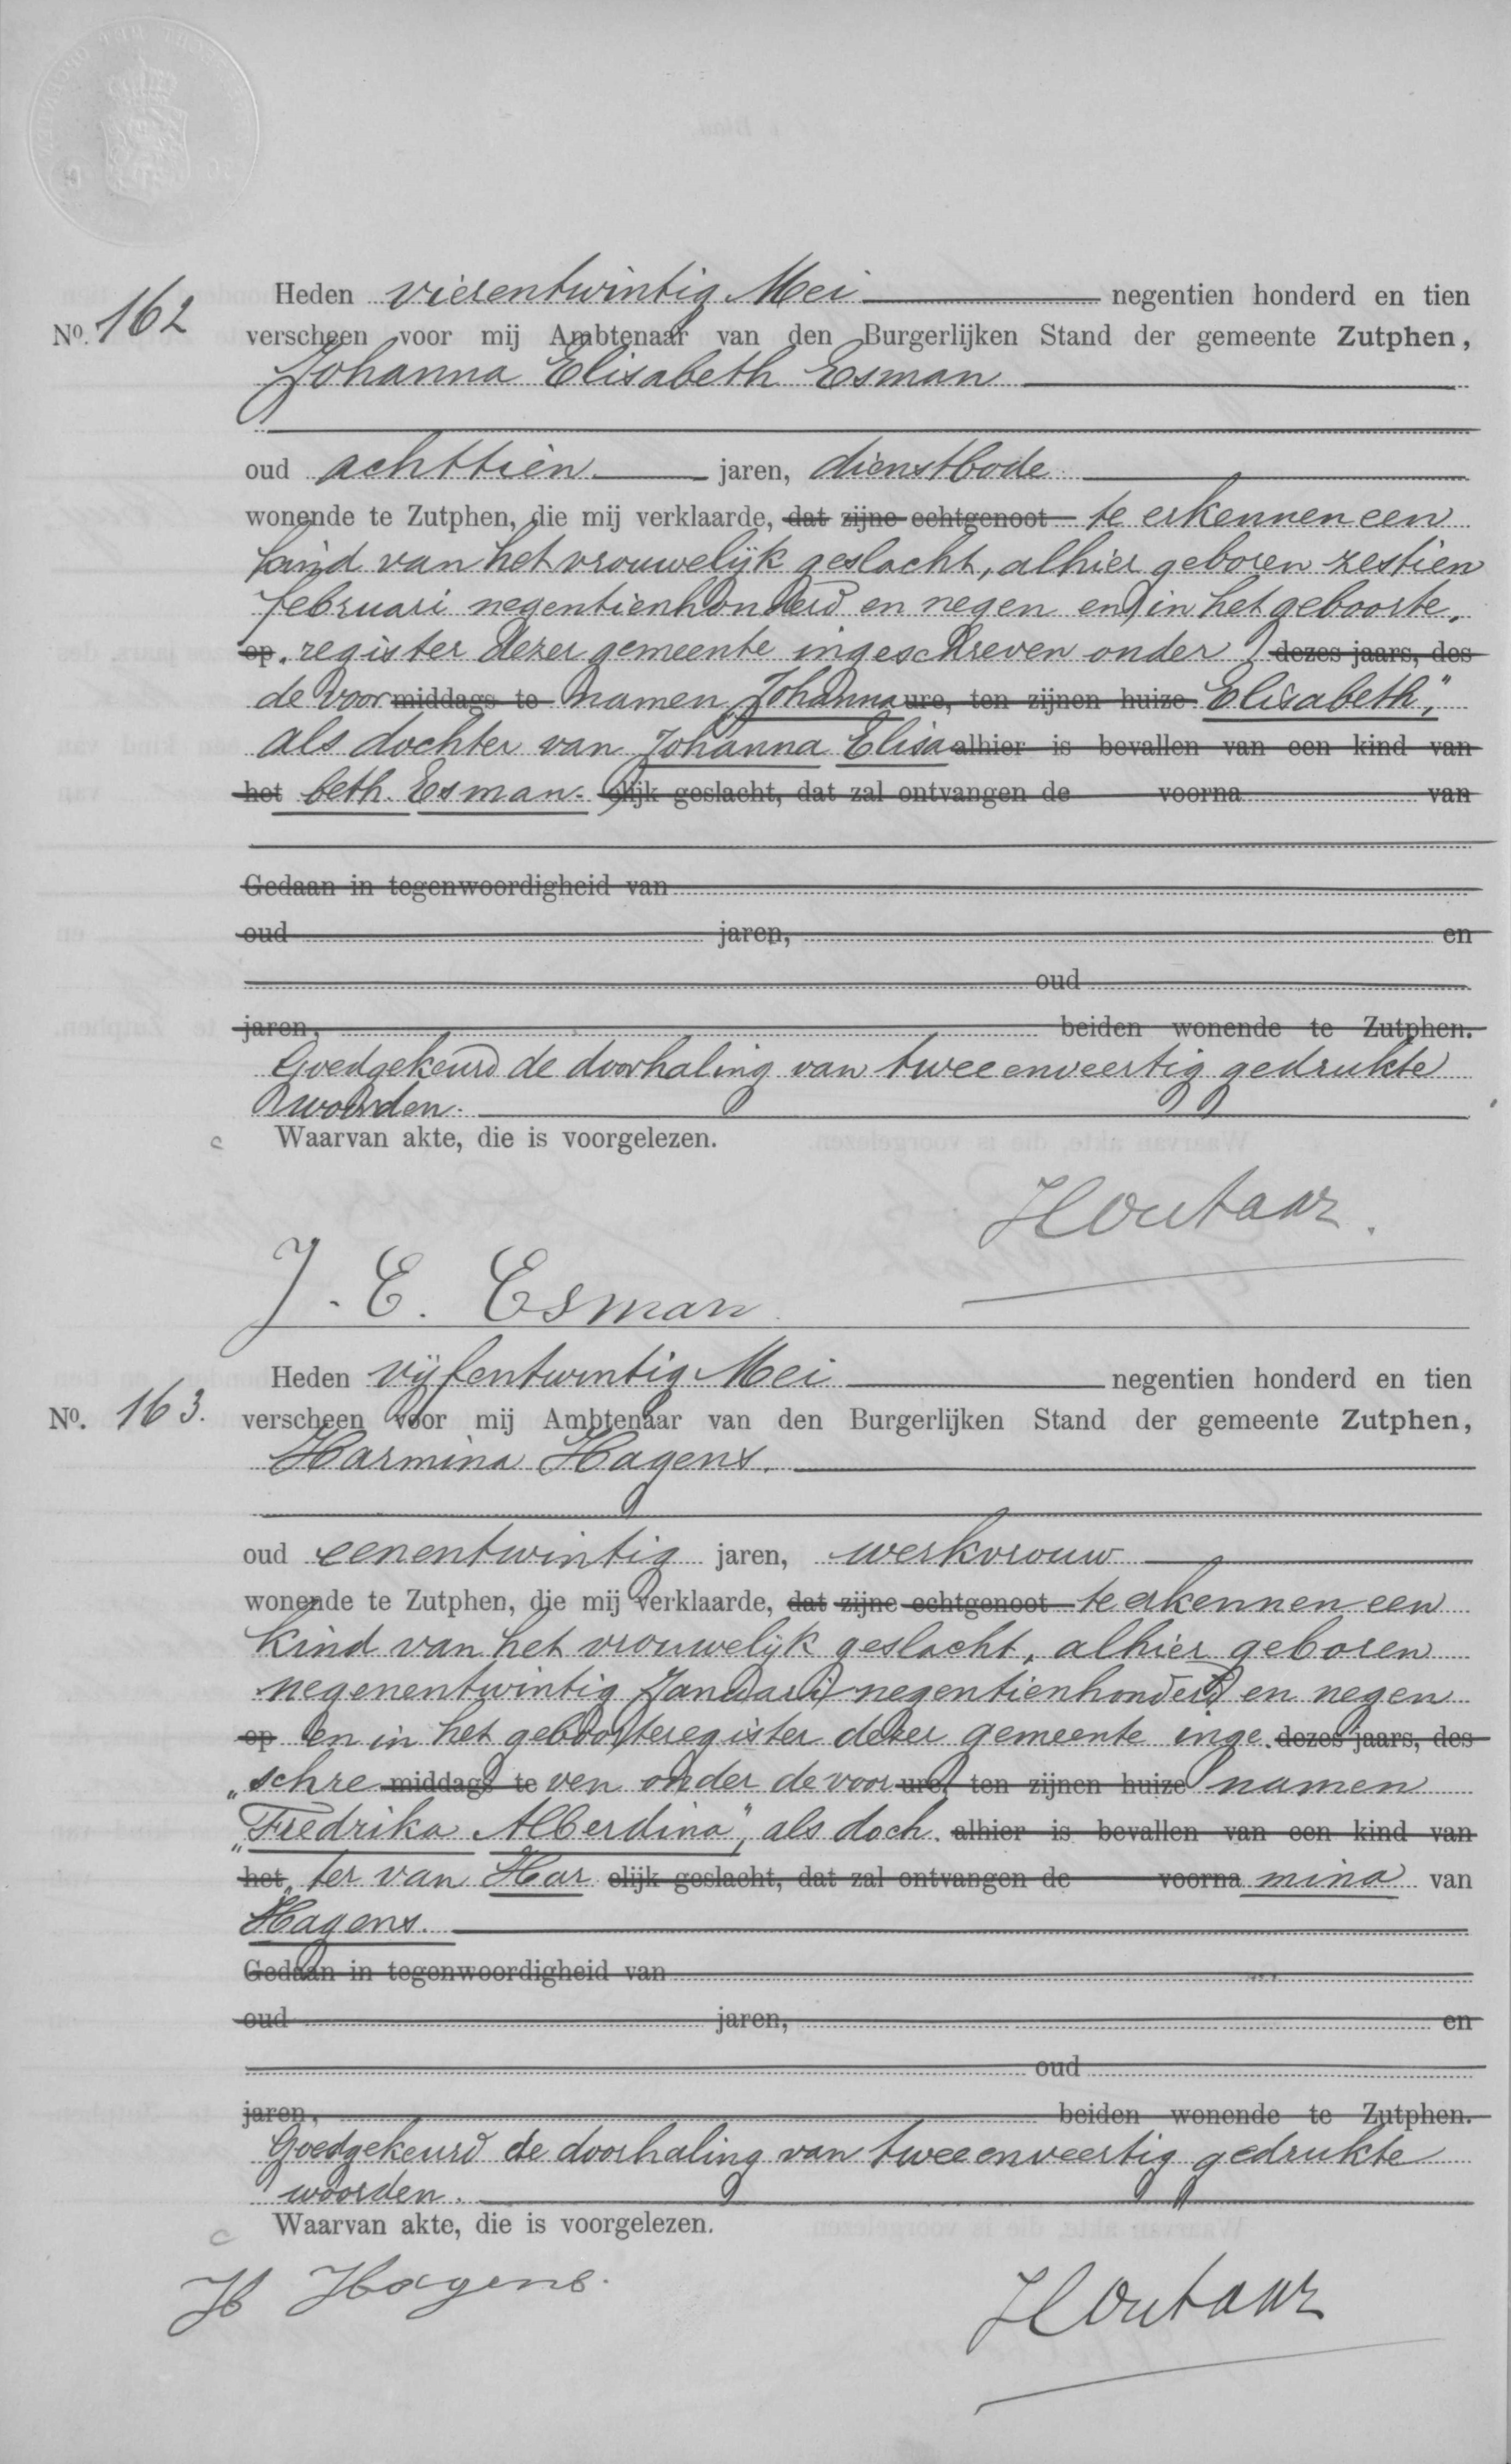 Heden vierentwintig Mei negentien honderd en tien
No. 162 verscheen voor mij Ambtenaar van den Burgerlijken Stand der gemeente Zutphen,
Johanna Elisabeth Esman
oud achttien jaren, dienstbode
wonende te Zutphen, die mij verklaarde, dat zijne echtgenoot te erkennen een
kind van het vrouwelijk geslacht, alhier geboren zestien
februari negentienhonderd en negen en in het geboorte
op register dezer gemeente ingeschreven onder dezes jaars, des
de voor middags te namen "Johanna ure, ten zijnen huize Elisabeth",
als dochter van Johanna Elisa alhier is bevallen van een kind van
het beth Esman. elijk geslacht, dat zal ontvangen de voorna van
Gedaan in tegenwoordigheid van
oud jaren, en
oud
jaren, beiden wonende te Zutphen.
Goedgekeurd de doorhaling van tweeenveertig gedrukte
woorden.
Waarvan akte, die is voorgelezen.
Houtaar.
J. E. Esman
Heden vijfentwintig Mei negentien honderd en tien
No. 163. verscheen voor mij Ambtenaar van den Burgerlijken Stand der gemeente Zutphen,
Harmina Hagens.
oud eenentwintig jaren, werkvrouw
wonende te Zutphen, die mij verklaarde, dat zijne echtgenoot te erkennen een
kind van het vrouwelijk geslacht, alhier geboren
negenentwintig Januari negentienhonderd en negen
op en in het geboorteregister dezer gemeente inge dezes jaars, des
"schre middags te ven onder de voor ure, ten zijnen huize namen
"Fredrika Alberdina", als doch alhier is bevallen van een kind van
het "ter van Har elijk geslacht, dat zal ontvangen de voorna mina van
Hagens.
Gedaan in tegenwoordigheid van
oud jaren, en
oud
jaren, beiden wonende te Zutphen.
Goedgekeurd de doorhaling van tweeenveertig gedrukte
woorden.
Waarvan akte, die is voorgelezen.
H Hagens.
Houtaar